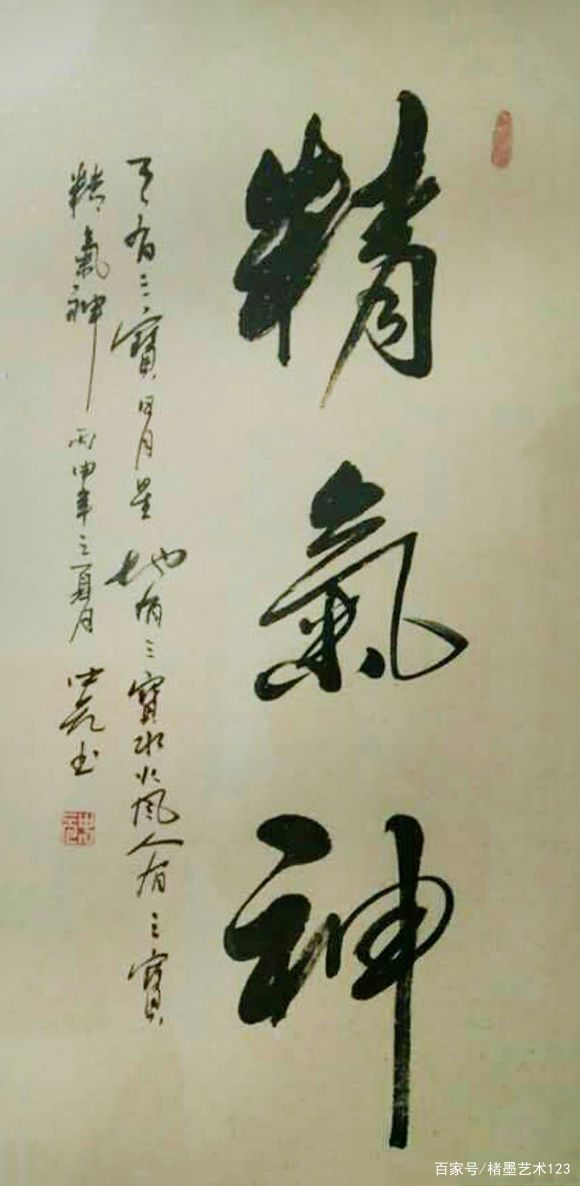 精氣神
天有三寶日月星地有三寶水火風人有三寶
精氣神 丙申年之夏月 书
百家号/楮墨艺术123